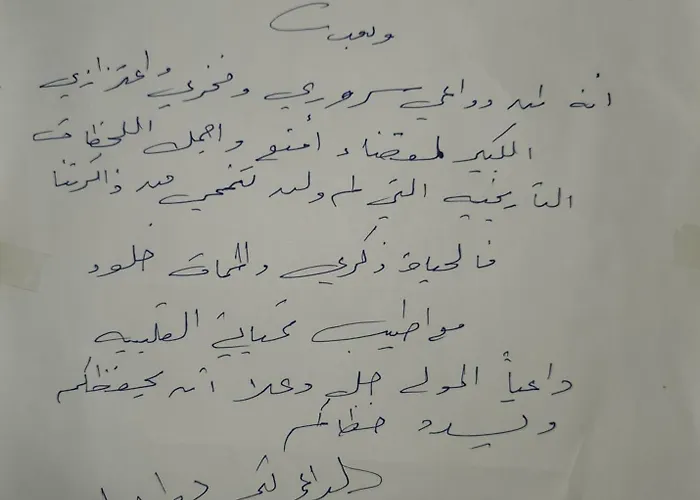 وبعد
أنه لمن دواعي سروري وفخري واعتزازي
الكبير لقضاء أمتع واجمل اللحظات
التاريخيه التي لم ولن تنمحي من ذاكرتنا
فالحياة ذكرى والممات خلود
مع اطيب تحياتي القلبيه
داعياً المولى جل وعلا أن يحفظكم
ويسدد خطاكم
الداعي لكم